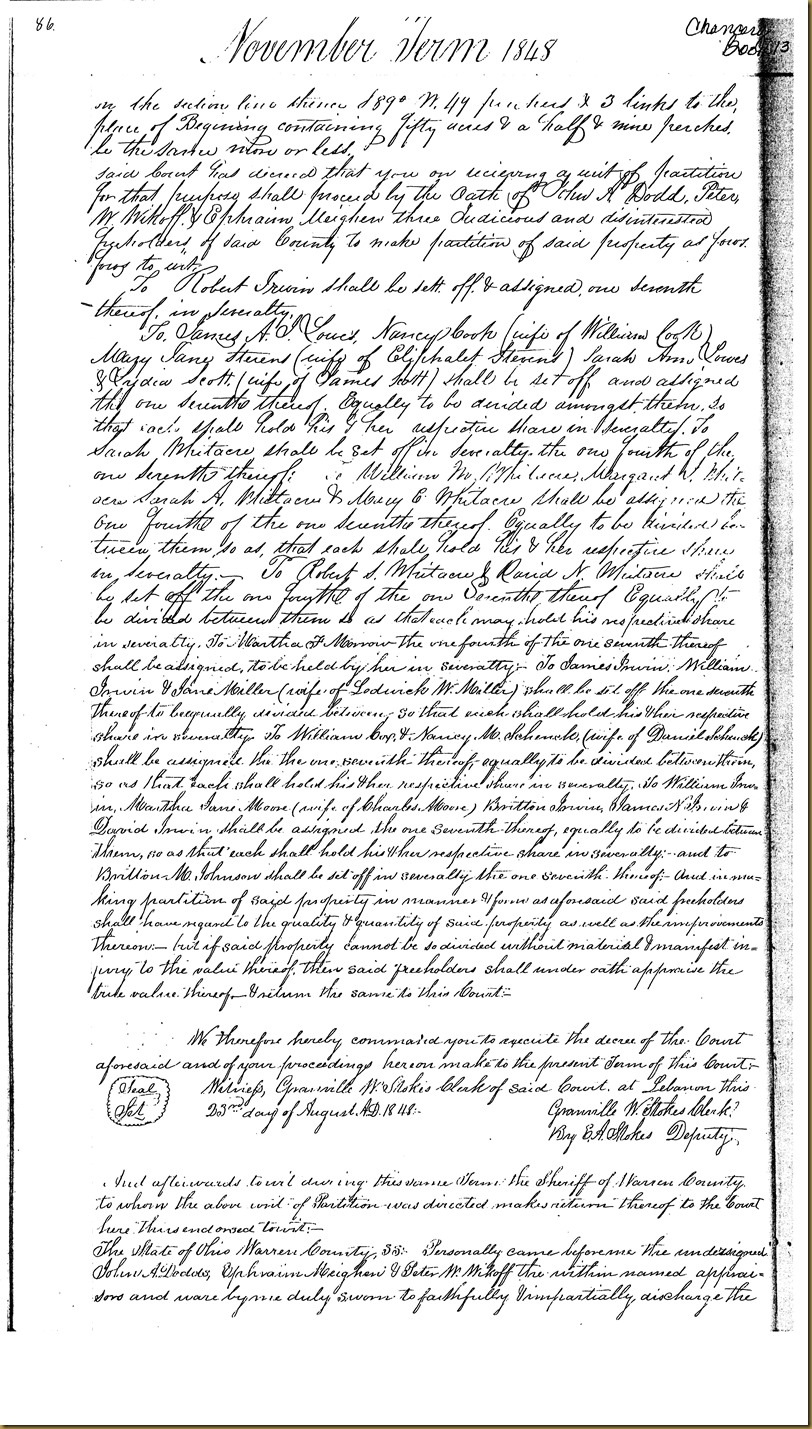 86.
Chancery
Book 13
November Term 1848
on the section line thence S89° W. 49 perches & 3 links to the
place of Begining containing fifty acres & a half & nine perches.
be the same more or less,
said Court has decreed that you on recieving a writ of partition
for that purpose shall proceed by the Oath of John A Dodd, Peter
W Wikoff & Ephraim Meighen three Judicious and disinterested
freeholders of said County to make partition of said property as follows
to wit,
To Robert Irwin shall be sett off & assigned, one seventh
thereof, in severalty,
To, James A. S. Lowes, Nancy Cook (wife of William Cook)
Mary Jane Stevens (wife of Eliphalet Stevens) Sarah Ann Lowes
& Lydia Scott (wife of James Scott) shall be set off and assigned
the one seventh thereof. Equally to be divided amongst them, so
that each shall hold his & her respective share in severalty. To
Sarah Whitacre, shall be set off in severalty the one fourth of the
one seventh thereof; To William M. Whitacre, Margaret Whit-
acre Sarah A. Whitacre & Mary E Whitacre shall be assigned the
one fourth of the one seventh thereof. Equally to be divided be-
tween them, so as, that each shall hold his & her respective share
in severalty.— To Robert S. Whitacre & David N Whitacre shall
be set off the one fourth of the one Seventh thereof Equally to
be divided between them so as that each may hold his respective share
in severalty. To Martha F Morrow the one fourth of the one seventh thereof
shall be assigned, to be held by her in severalty;— To James Irwin, William
Irwin & Jane Miller (wife of Lodwick W. Miller) shall be set off the one seventh
thereof to be equally divided between, so that each shall hold his & her respective
share in severalty. To William Cox, & Nancy M. Schenck, (wife of Daniel Schenck)
shall be assigned the the one seventh thereof, equally to be divided between them,
so as that each shall hold his & her respective share in severalty, To William Irw-
in, Martha Jane Moore (wife of Charles Moore) Britton Irwin, James N Irwin &
David Irwin shall be assigned the one seventh thereof, equally to be divided between
them, so as that each shall hold his & her respective share in severalty;— and to
Britton M. Johnson shall be set off in severalty the one seventh thereof;— And in ma-
king partition of said property in manner & form as aforesaid said freeholders
shall have regard to the quality & quantity of said property as well as the improvements
thereon;— but if said property cannot be so divided without material & manifest in-
jury to the value thereof, then said freeholders shall under oath appraise the
true value thereof & return the same to this Court:—
We therefore hereby command you to execute the decree of the Court
aforesaid and of your proceedings hereon make to the present Term of this Court;—
Seal
Witness, Granville W. Stokes Clerk of said Court, at Lebanon this
23rd day of August A.D. 1848:— Granville W. Stokes Clerk
By E.A. Stokes Deputy;
And afterwards to wit during this same Term the Sheriff of Warren County
to whom the above writ of Partition was directed makes return thereof to the Court
here thus endorsed to wit:—
The State of Ohio Warren County, SS:— Personally came before me the undersigned
John A. Dodds, Ephraim Meighen & Peter W. Wikoff the within named apprai-
sors and ware by me duly sworn to faithfully & impartially, discharge the